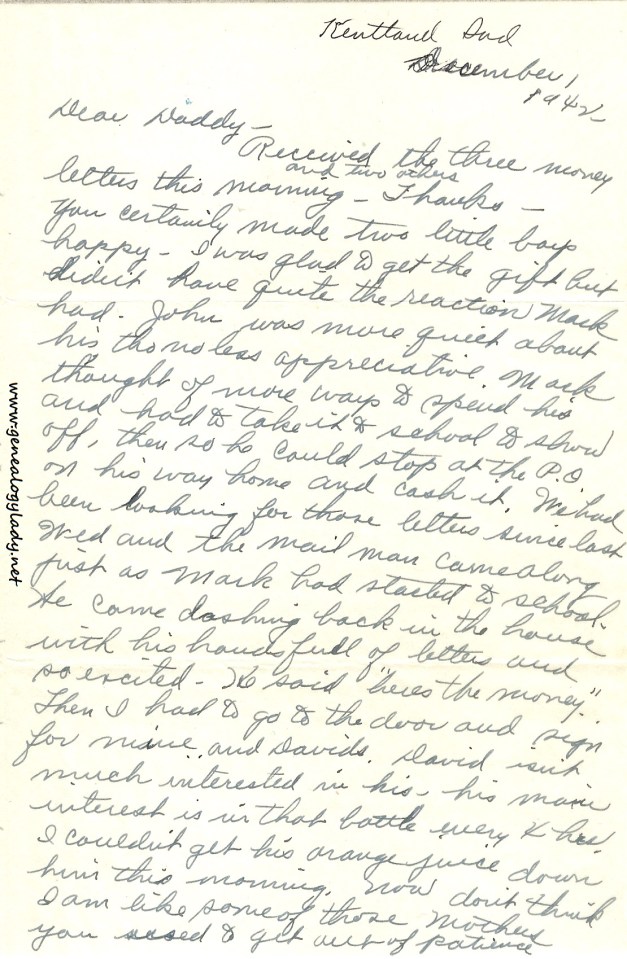 Kentland Ind
December 1
1942
Dear Daddy—
Received the three money
and two others
letters this morning — Thanks —
You certainly made two little boys
happy — I was glad to get the gift but
didn't have quite the reaction Mark
had. John was more quiet about
his tho no less appreciative. Mark
thought of more ways to spend his
and had to take it to school to show
off, then so he could stop at the P.O
on his way home and cash it. We had
been looking for those letters since last
Wed and the mail man came along
just as Mark had started to school.
He came dashing back in the house
with his hands full of letters and
so excited — He said "heres the money".
Then I had to go to the door and sign
for mine and Davids. David isnt
much interested in his — his main
interest is in that bottle every 4 hrs.
I couldn't get his orange juice down
him this morning. Now dont think
I am like some of those mothers
you used to get out of patience
www.genealogylady.net